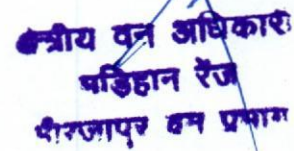 क्षेत्रीय वन अधिकारी
मड़िहान रेंज
मीरजापुर वन प्रभाग